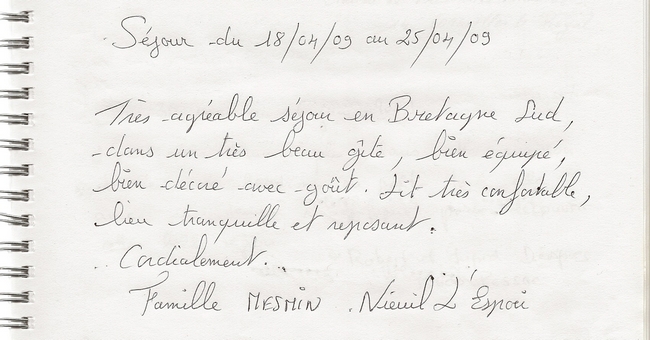 Séjour du 18/04/09 au 25/04/09
Très agréable séjour en Bretagne Sud,
dans un très beau gîte, bien équipé,
bien décoré avec goût. Lit très confortable,
lieu tranquille et reposant.
Cordialement.
Famille MESMIN. Nieuil L'Espoir